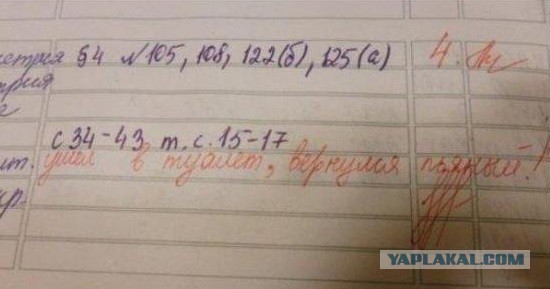 метрия §4 №105, 108, 122(б), 125(а) 4.
с 34-43 т. с. 15-17
ит. ушел в туалет, вернулся пьяный!
YAPLAKAL.COM